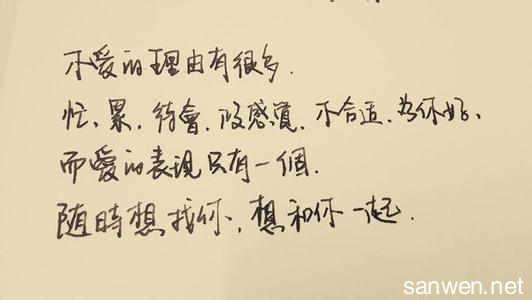 不愛的理由有很多.
忙、累、待會、没感覚、不合适、為你好、
而愛的表現只有一個.
随時想找你、想和你一起.
sanwen.net